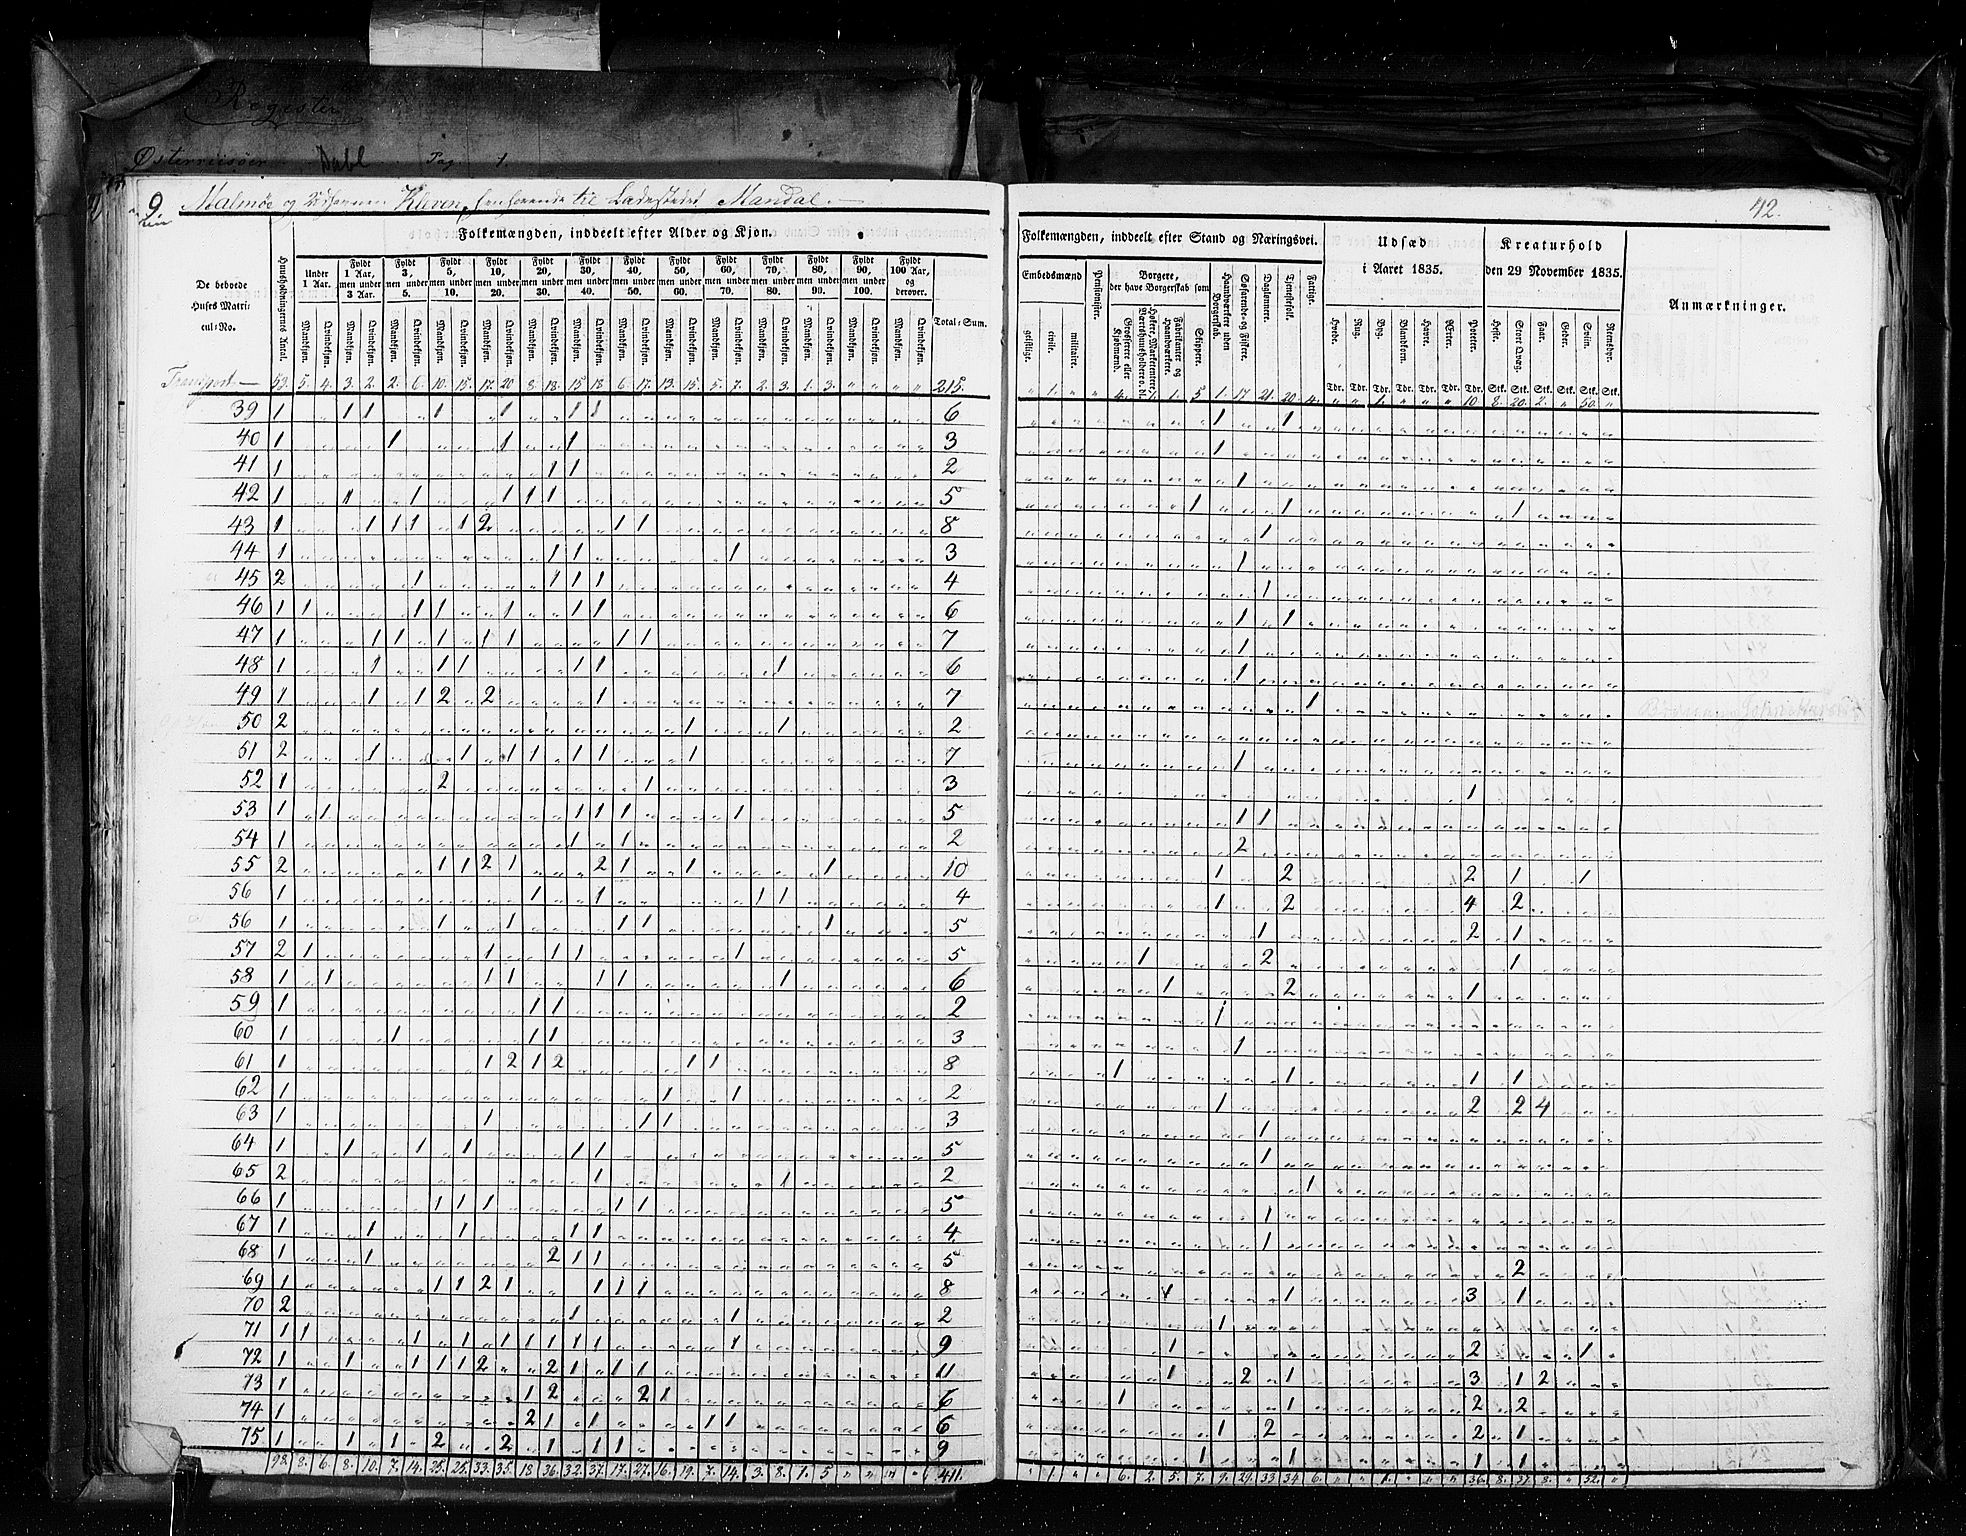 Register
Østerriisöer Dahl Pag 1.
9
Malmöe og Kleven, henhörende til Ladestedet Mandal.
42.
Folkemængden, inddeelt efter Alder og Kjøn.
Folkemængden, inddeelt efter Stand og Næringsvei.
Udsæd i Aaret 1835.
Kreaturhold den 29 November 1835.
Anmærkninger.
De beboede Huses Matricul-No.
Huusholdningernes Antal.
Under 1 Aar.
Fyldt 1 Aar, men under 3 Aar.
Fyldt 3, men under 5.
Fyldt 5, men under 10.
Fyldt 10, men under 20.
Fyldt 20, men under 30.
Fyldt 30, men under 40.
Fyldt 40, men under 50.
Fyldt 50, men under 60.
Fyldt 60, men under 70.
Fyldt 70, men under 80.
Fyldt 80, men under 90.
Fyldt 90, men under 100.
Fyldt 100 Aar, og derover.
Mandkjøn. Qvindekjøn.
Total-Sum.
Embedsmænd
geistlige. civile. militaire.
Pensionister.
Borgere, der have Borgerskab som
Grosserere eller Kjøbmænd.
Høkere, Marketentere, Værtshuusholdere o. dl.
Fabrikanter og Haandværkere.
Skippere.
Haandværkere uden Borgerskab.
Søfarende og Fiskere.
Daglønnere.
Tjenestefolk.
Fattige.
Hvede. Rug. Byg. Blandkorn. Havre. Ærter. Poteter.
Heste. Stort Qvæg. Faar. Geder. Sviin. Rensdyr.
Tdr. Tdr. Tdr. Tdr. Tdr. Tdr. Tdr. Stk. Stk. Stk. Stk. Stk. Stk.
Transport 53. 5. 4. 3. 2. 2. 6. 10. 15. 17. 20 8. 18. 15 18 6. 17. 13. 15. 5. 7. 2. 3. 1. 3. " " " " 215.
39 1 1 1 1 1 1 1 6 1 1
40 1 1 1 1 3 1
41 1 1 1 2 1
42 1 1 1 1 1 1 5 1 1 1
43 1 1 1 1 1 2 1 1 8 1
44 1 1 1 1 3 1
45 2 1 1 1 1 4 1
46 1 1 1 1 1 1 1 6 1 1
47 1 1 1 1 1 1 1 1 7 1
48 1 1 1 1 1 1 1 6 1
49 1 1 1 2 2 1 7 1
50 2 1 1 2
51 2 1 1 1 1 1 1 1 7 1
52 1 2 1 3 1
53 1 1 1 1 1 1 5 1 1
54 1 1 1 2 2
55 2 1 1 2 1 2 1 1 1 10 1 2 2 1 1
56 1 1 1 1 1 4 1 2 4 2
56 1 1 1 1 1 1 5 1 2 1
57 2 1 1 1 1 1 5 1 2 1
58 1 1 1 1 1 1 1 6 1 2 1
59 1 1 1 2 1
60 1 1 1 1 3 1
61 1 1 2 1 2 1 1 8 1 1 1 1
62 1 1 1 2 1 2 2 4
63 1 1 1 1 3 1
64 1 1 1 1 1 1 5 1
65 2 1 1 2 1
66 1 1 1 1 1 1 5 1
67 1 1 1 1 1 4 1
68 1 1 2 1 1 5 2
69 1 1 1 2 1 1 1 1 8 1 1 3 1
70 2 1 1 2 1
71 1 1 1 1 1 1 1 1 1 1 9 1 2 1
72 1 1 1 1 1 2 2 1 1 1 11 1 2 1 3 1 2
73 1 1 2 2 1 6 1 1 2 2
74 1 2 1 1 1 1 6 1 2 2 1
75 1 1 1 2 2 1 1 1 9 1 1 1 1
98. 8. 6. 8. 10. 7. 14. 25. 25. 33. 35. 18 36. 32. 37. 17. 27. 16. 19. 7. 14. 3. 8. 1. 5 " " " " 411.
" 1. " " 6. 2. 5. 7. 9. 29. 33 34. 6. " " 1. " " " 36. 8. 37. 8. " 52. "